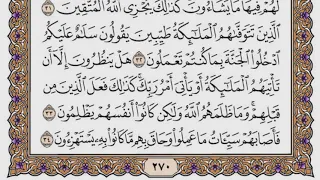 لَهُمْ فِيهَا مَا يَشَآءُونَ كَذَٰلِكَ يَجْزِى ٱللَّهُ ٱلْمُتَّقِينَ ٣١
ٱلَّذِينَ تَتَوَفَّىٰهُمُ ٱلْمَلَـٰٓئِكَةُ طَيِّبِينَ يَقُولُونَ سَلَـٰمٌ عَلَيْكُمُ
ٱدْخُلُوا۟ ٱلْجَنَّةَ بِمَا كُنتُمْ تَعْمَلُونَ ٣٢ هَلْ يَنظُرُونَ إِلَّآ أَن
تَأْتِيَهُمُ ٱلْمَلَـٰٓئِكَةُ أَوْ يَأْتِىَ أَمْرُ رَبِّكَ كَذَٰلِكَ فَعَلَ ٱلَّذِينَ مِن
قَبْلِهِمْ وَمَا ظَلَمَهُمُ ٱللَّهُ وَلَـٰكِن كَانُوٓا۟ أَنفُسَهُمْ يَظْلِمُونَ ٣٣
فَأَصَابَهُمْ سَيِّـَٔاتُ مَا عَمِلُوا۟ وَحَاقَ بِهِم مَّا كَانُوا۟ بِهِۦ يَسْتَهْزِءُونَ ٣٤
٢٧٠